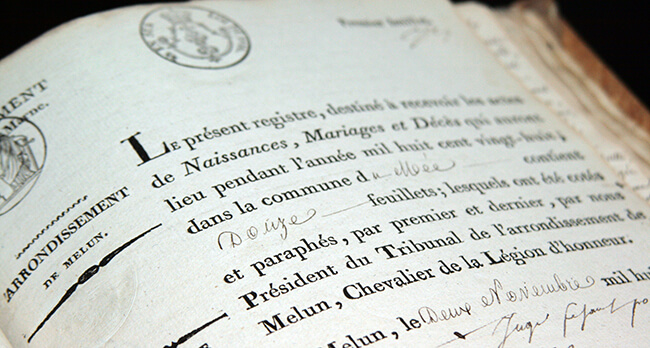 Premier feuillet.
MENT
Marne.
ARRONDISSEMENT
DE MELUN.
LE présent registre, destiné à recevoir les actes
de Naissances, Mariages et Décès qui auront
lieu pendant l'année mil huit cent vingt-huit,
dans la commune du Mée contient
Douze feuillets; lesquels ont été cotés
et paraphés, par premier et dernier, par nous
Président du Tribunal de l'arrondissement de
Melun, Chevalier de la Légion d'honneur.
Melun, le Deux Novembre mil hui
Juge